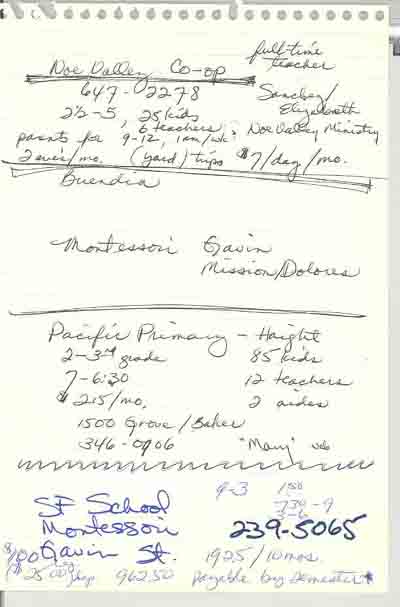 full-time
teacher
Noe Valley Co-op
647-2278 Sanchez/
Elizabeth
2½-5, 25 kids
6 teachers Noe Valley Ministry
parents for 9-12, 1 am/wk.
2 eve's/mo. (yard) trips $7/day/mo.
Buendia
Montessori Gavin
Mission/Dolores
Pacific Primary - Haight
2-3rd grade 85 kids
7-6:30 12 teachers
$215/mo. 2 aides
1500 Grove/Baker
346-0906 "Mary"
SF School
Montessori
Gavin St.
9-3 1:50
239-9
3-6
239-5065
$100
1925/10 mos.
($25.00 962.50 payable by semester